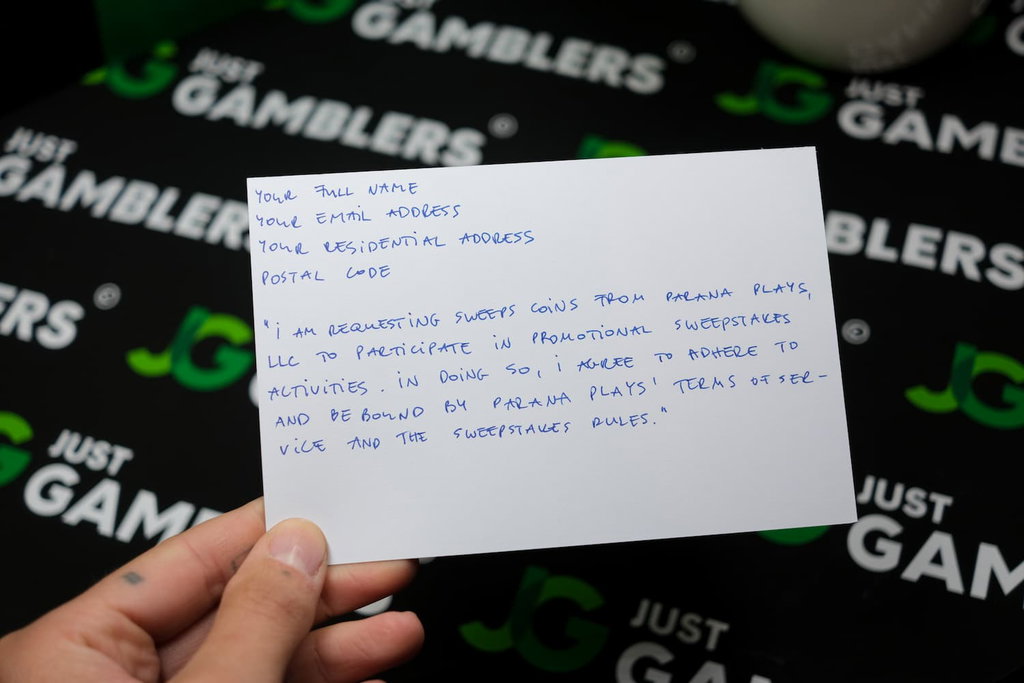 JUST
GAMBLERS
JG JUST
GAMBLERS
JG JUST
GAME
JUST
GAMBLERS
YOUR FULL NAME
YOUR EMAIL ADDRESS
YOUR RESIDENTIAL ADDRESS
POSTAL CODE
"I AM REQUESTING SWEEPS COINS FROM PARANA PLAYS,
LLC TO PARTICIPATE IN PROMOTIONAL SWEEPSTAKES
ACTIVITIES. IN DOING SO, I AGREE TO ADHERE TO
AND BE BOUND BY PARANA PLAYS' TERMS OF SER-
VICE AND THE SWEEPSTAKES RULES."
BLERS
ERS
JG
JG
JUST
GAM
JUST
GAM
JG JUST
GAM